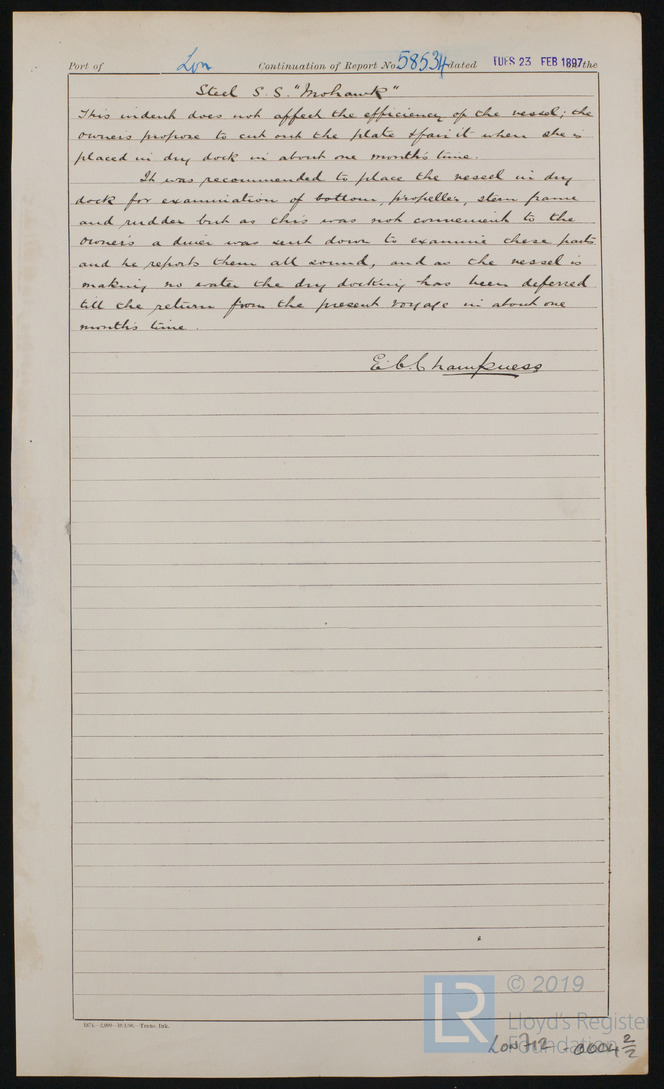 Port of Lon Continuation of Report No. 58534 dated TUES 23 FEB 1897 the
Steel S.S. "Mohawk"
This indent does not affect the efficiency of the vessel; the
owners propose to cut out the plate & fair it when she is
placed in dry dock in about one month's time.
It was recommended to place the vessel in dry
dock for examination of bottom, propeller, stern frame
and rudder but as this was not convenient to the
owners a diver was sent down to examine these parts
and he reports them all sound, and as the vessel is
making no water the dry docking has been deferred
till the return from the present voyage in about one
month's time.
E.C. Champness
Transc Ink.
© 2019
LR
Lloyd's Register
Foundation
LON712 - 0004 2/2